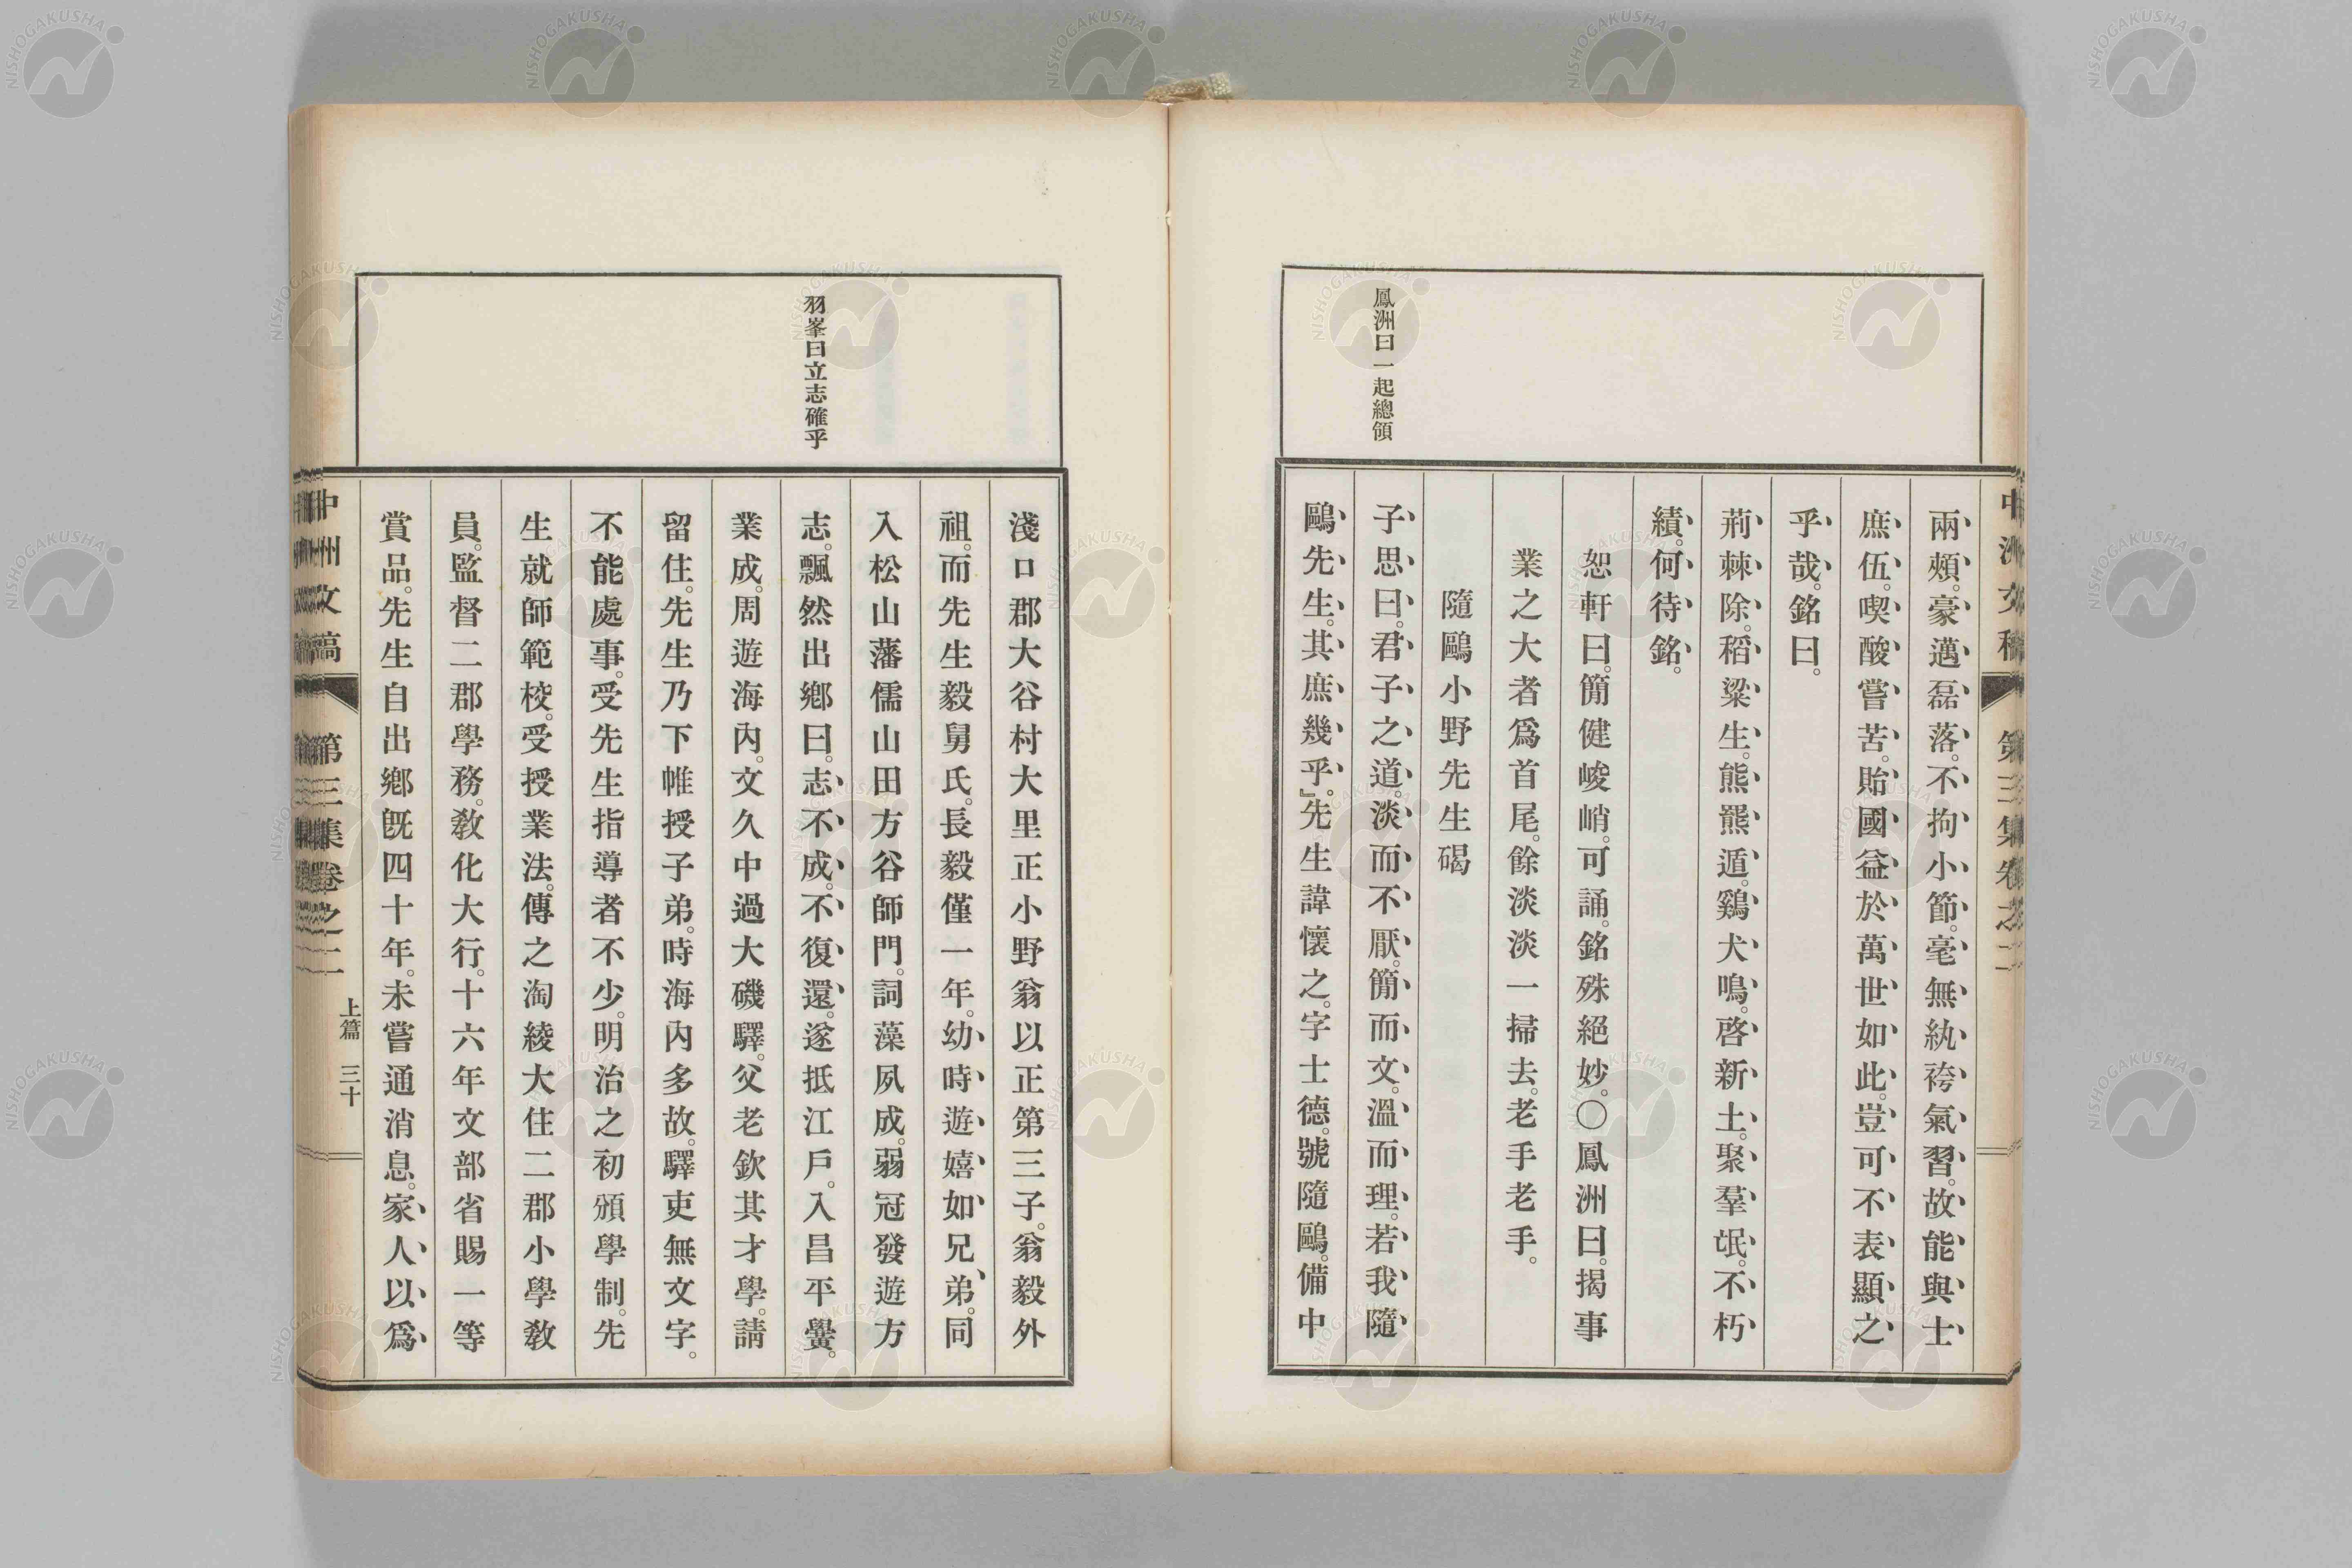 兩頰。豪邁磊落。不拘小節。毫無紈袴氣習。故能與士
庶伍。喫酸嘗苦。貽國益於萬世如此。豈可不表顯之
乎哉。銘曰。
荊棘除。稻粱生。熊羆遁。鷄犬鳴。啓新土。聚羣氓。不朽
績。何待銘。
恕軒曰。簡健峻峭。可誦。銘殊絕妙。〇鳳洲曰。揭事
業之大者爲首尾。餘淡淡一掃去。老手老手。
隨鷗小野先生碣
鳳洲曰一起總領
子思曰。君子之道。淡而不厭。簡而文。溫而理。若我隨
鷗先生。其庶幾乎。』先生諱懷之。字士德。號隨鷗。備中
淺口郡大谷村大里正小野翁以正第三子。翁毅外
祖。而先生毅舅氏。長毅僅一年。幼時遊嬉如兄弟。同
入松山藩儒山田方谷師門。詞藻夙成。弱冠發遊方
羽峯曰立志確乎
志。飄然出鄕曰。志不成。不復還。遂抵江戶。入昌平黌。
業成。周遊海內。文久中過大磯驛。父老欽其才學。請
留住。先生乃下帷授子弟。時海內多故。驛吏無文字。
不能處事。受先生指導者不少。明治之初頒學制。先
生就師範校。受授業法。傳之淘綾大住二郡小學敎
員。監督二郡學務。敎化大行。十六年文部省賜一等
賞品。先生自出鄕既四十年。未嘗通消息。家人以爲
中洲文稿 第三集卷之二
上篇 三十
中洲文稿 第三集卷之二
NISHOGAKUSHA